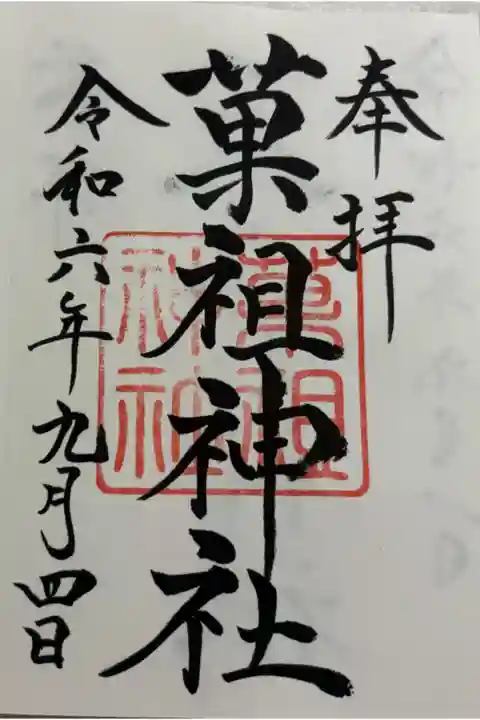 奉拝
菓祖神社
菓祖
神社
令和六年九月四日